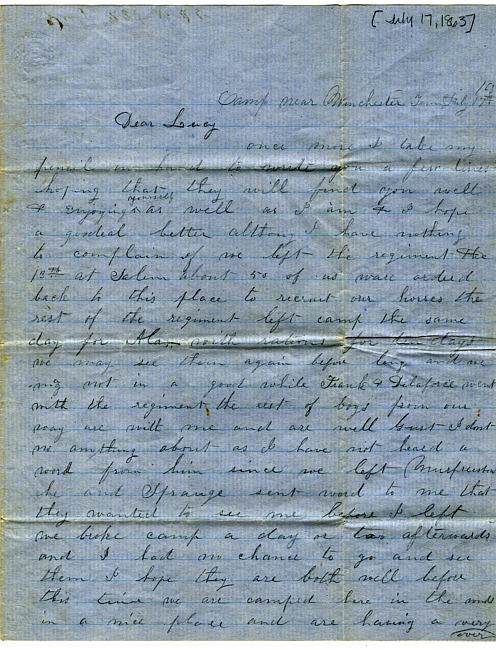 [July 17, 1863]
Camp near Winchester Tenn July 17th
Dear Lucy
once more I take my
pencil in hand to write you a few lines
hoping that they will find you well
& enjoying yourself as well as I am & I hope
a godeal better althoug I have nothing
to complain of we left the regiment the
13th at Salem about 50 of us ware ordered
back to this place to recruit our horses the
rest of the regiment left camp the same
day for Ala with rations for ten days
we may see them again before long and we
may not in a good while Frank & went
with the regiment the rest of boys from our
way are with me and are well Gust I dont
no anything about as I have not heard a
word from him since we left Murfreesboro
he and Sprauge sent word to me that
they wanted to see me before I left
we broke camp a day or too afterwards
and I had no chance to go and see
them I hope they are both well before
this time we are camped here in the woods
in a nice place and are having a very
over